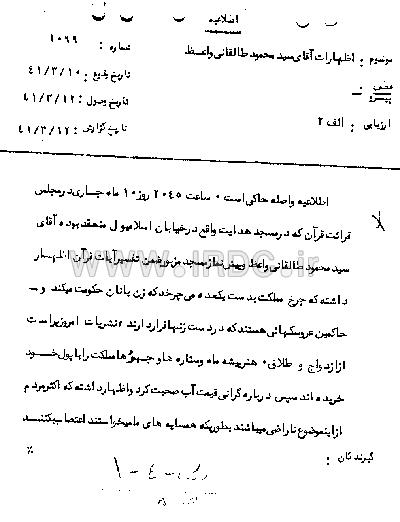 اطلاعیه
موضوع : اظهارات آقای سید محمود طالقانی واعظ
شماره : ۱۰۶۹
تاریخ وقوع : ۴۱/۳/۱۰
پیرو
تاریخ وصول : ۴۱/۳/۱۲
ارزیابی : الف ۲
تاریخ گزارش : ۴۱/۳/۱۲
اطلاعیه واصله حاکی است ۰ ساعت ۲۰۴۵ روز ۱۰ ماه جاری در مجلس
قرائت قرآن که در مسجد هدایت واقع در خیابان اسلامبول منعقد بوده آقای
سید محمود طالقانی واعظ و پیش نماز مسجد مزبور ضمن تفسیر آیات قرآن اظهار
داشته که چرخ مملکت بدست یکعده می چرخد که زن بانان حکومت میکند و -
حاکمین عروسکهائی هستند که در دست زنها قرار دارند ، نشریات امروز پر است
از ازدواج و طلاق ۰ هنرپیشه ها و ستاره ها و جیبورها مملکت را با پول خود
خریده اند سپس درباره گرانی قیمت آب صحبت کرد و اظهار داشته که اکثر مردم
از اینموضوع ناراضی میباشند بطوریکه همسایه های ما میخواستند اعتصاب بکنند
گیرندگان :
www.IRDC.ir